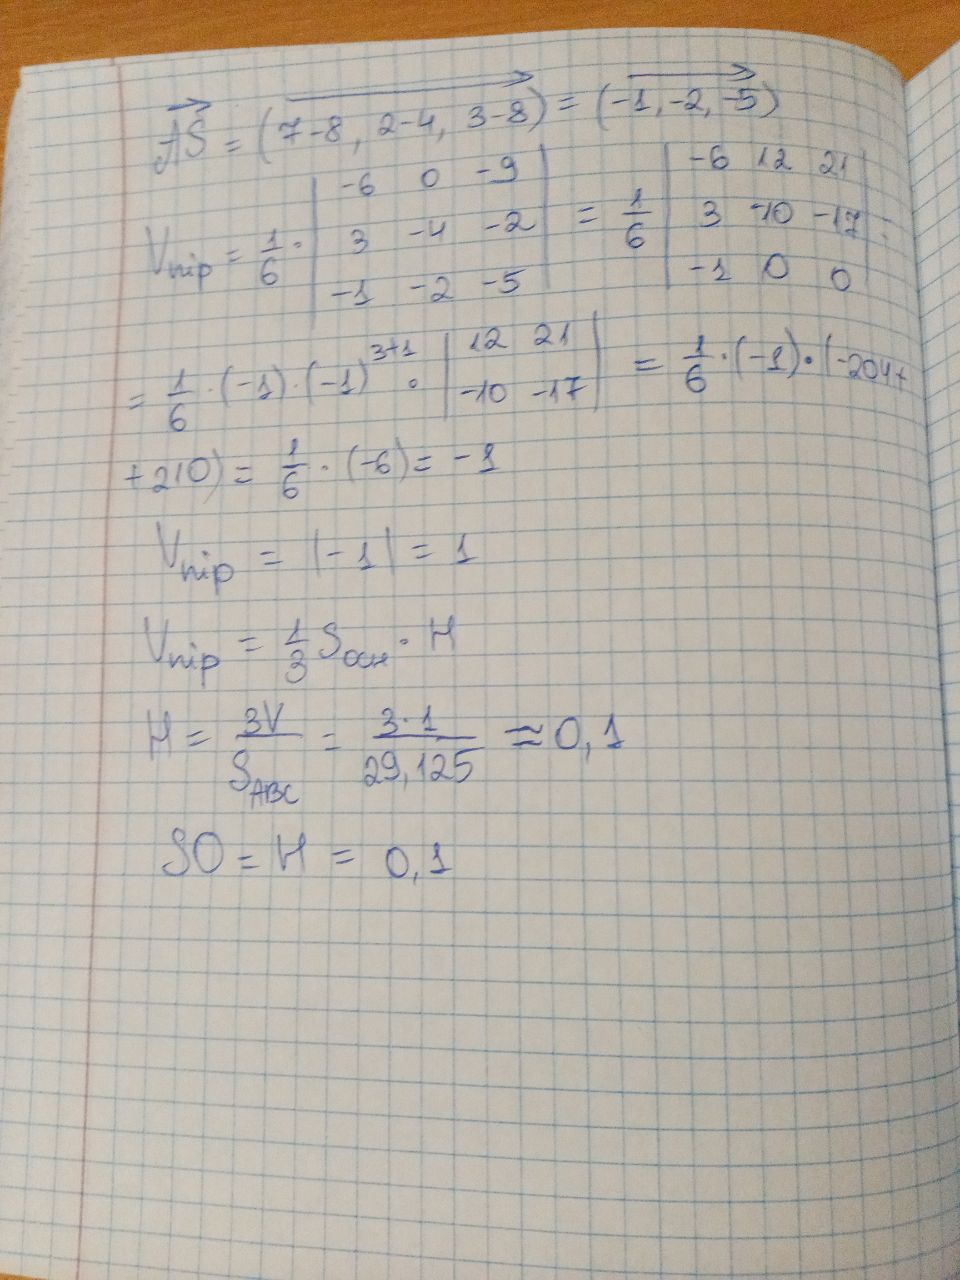 AS = (7-8, 2-4, 3-8) = (-1, -2, -5)
Vпір = 1/6 · | -6 0 -9 | = 1/6 | -6 12 21 |
| 3 -4 -2 | | 3 -10 -17 |
| -1 -2 -5 | | -1 0 0 |
= 1/6 · (-1) · (-1)^3+1 · | 12 21 | = 1/6 · (-1) · (-204+
| -10 -17 |
+210) = 1/6 · (-6) = -1
Vпір = |-1| = 1
Vпір = 1/3 Sосн · H
H = 3V/SABC = 3·1/29,125 ≈ 0,1
SO = H = 0,1